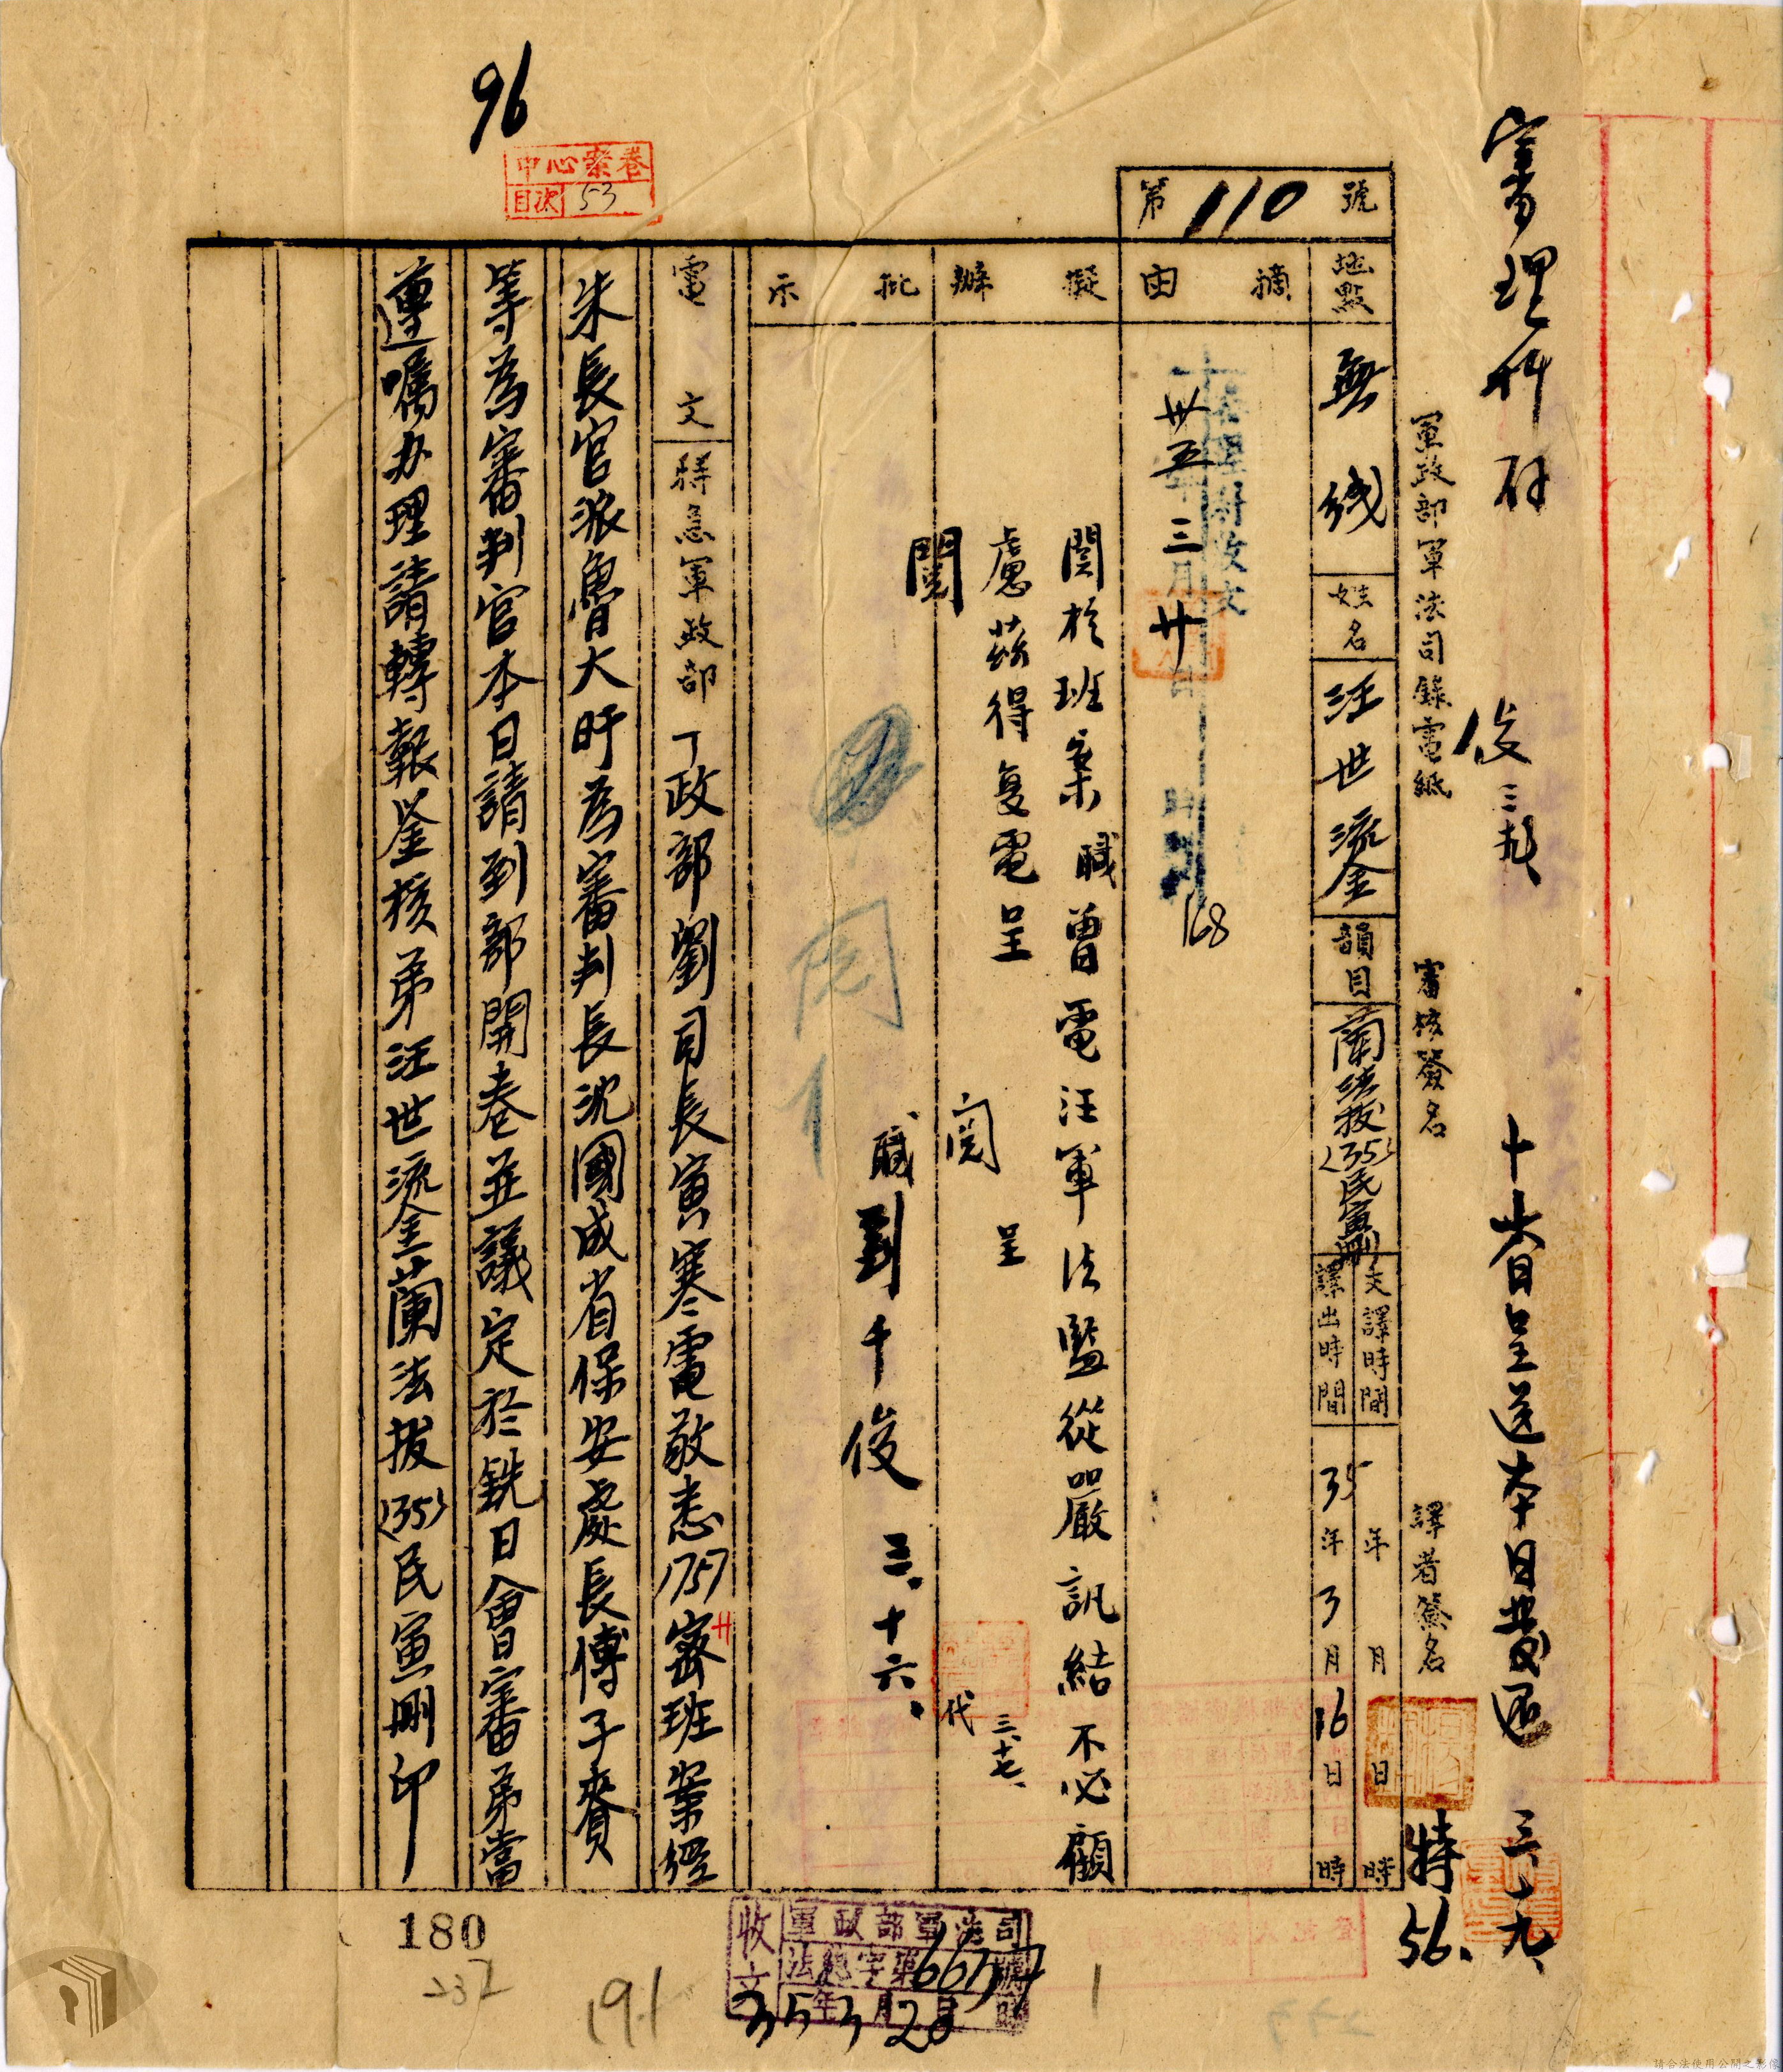 審理科存 俊 三九
十六日呈送本日發還 三、九
軍政部軍法司錄電紙 審核簽名 譯者簽名
特56.
第110號
地點 無线 姓名 汪世鎏 韻目 蘭法拔(35)民寅刪
支譯時間 年 月 日 時
譯出時間 35年3月16日 時
摘由
卅五年三月廿日 時到
收文
168
擬辦
関於班案職曾電汪軍法監從嚴訊結不必顧
慮茲得复電呈
閱
呈
閱
代 三、十七、
批示
職劉千俊 三、十六、
閱
電文
特急軍政部丁政部劉司長寅寒電敬悉1757密班案經
朱長官派魯大盱為審判長沈國成省保安處長傅子賚
等為審判官本日請到部開卷並議定於銑日會審弟當
遵囑办理請轉報鉴核弟汪世鎏蘭法拔(35)民寅刪印
96
中心案卷
目次 53
收文
軍政部軍法司
法總字第6637號
35年3月2日 時
180
237
191
1
請合法使用公開之影像